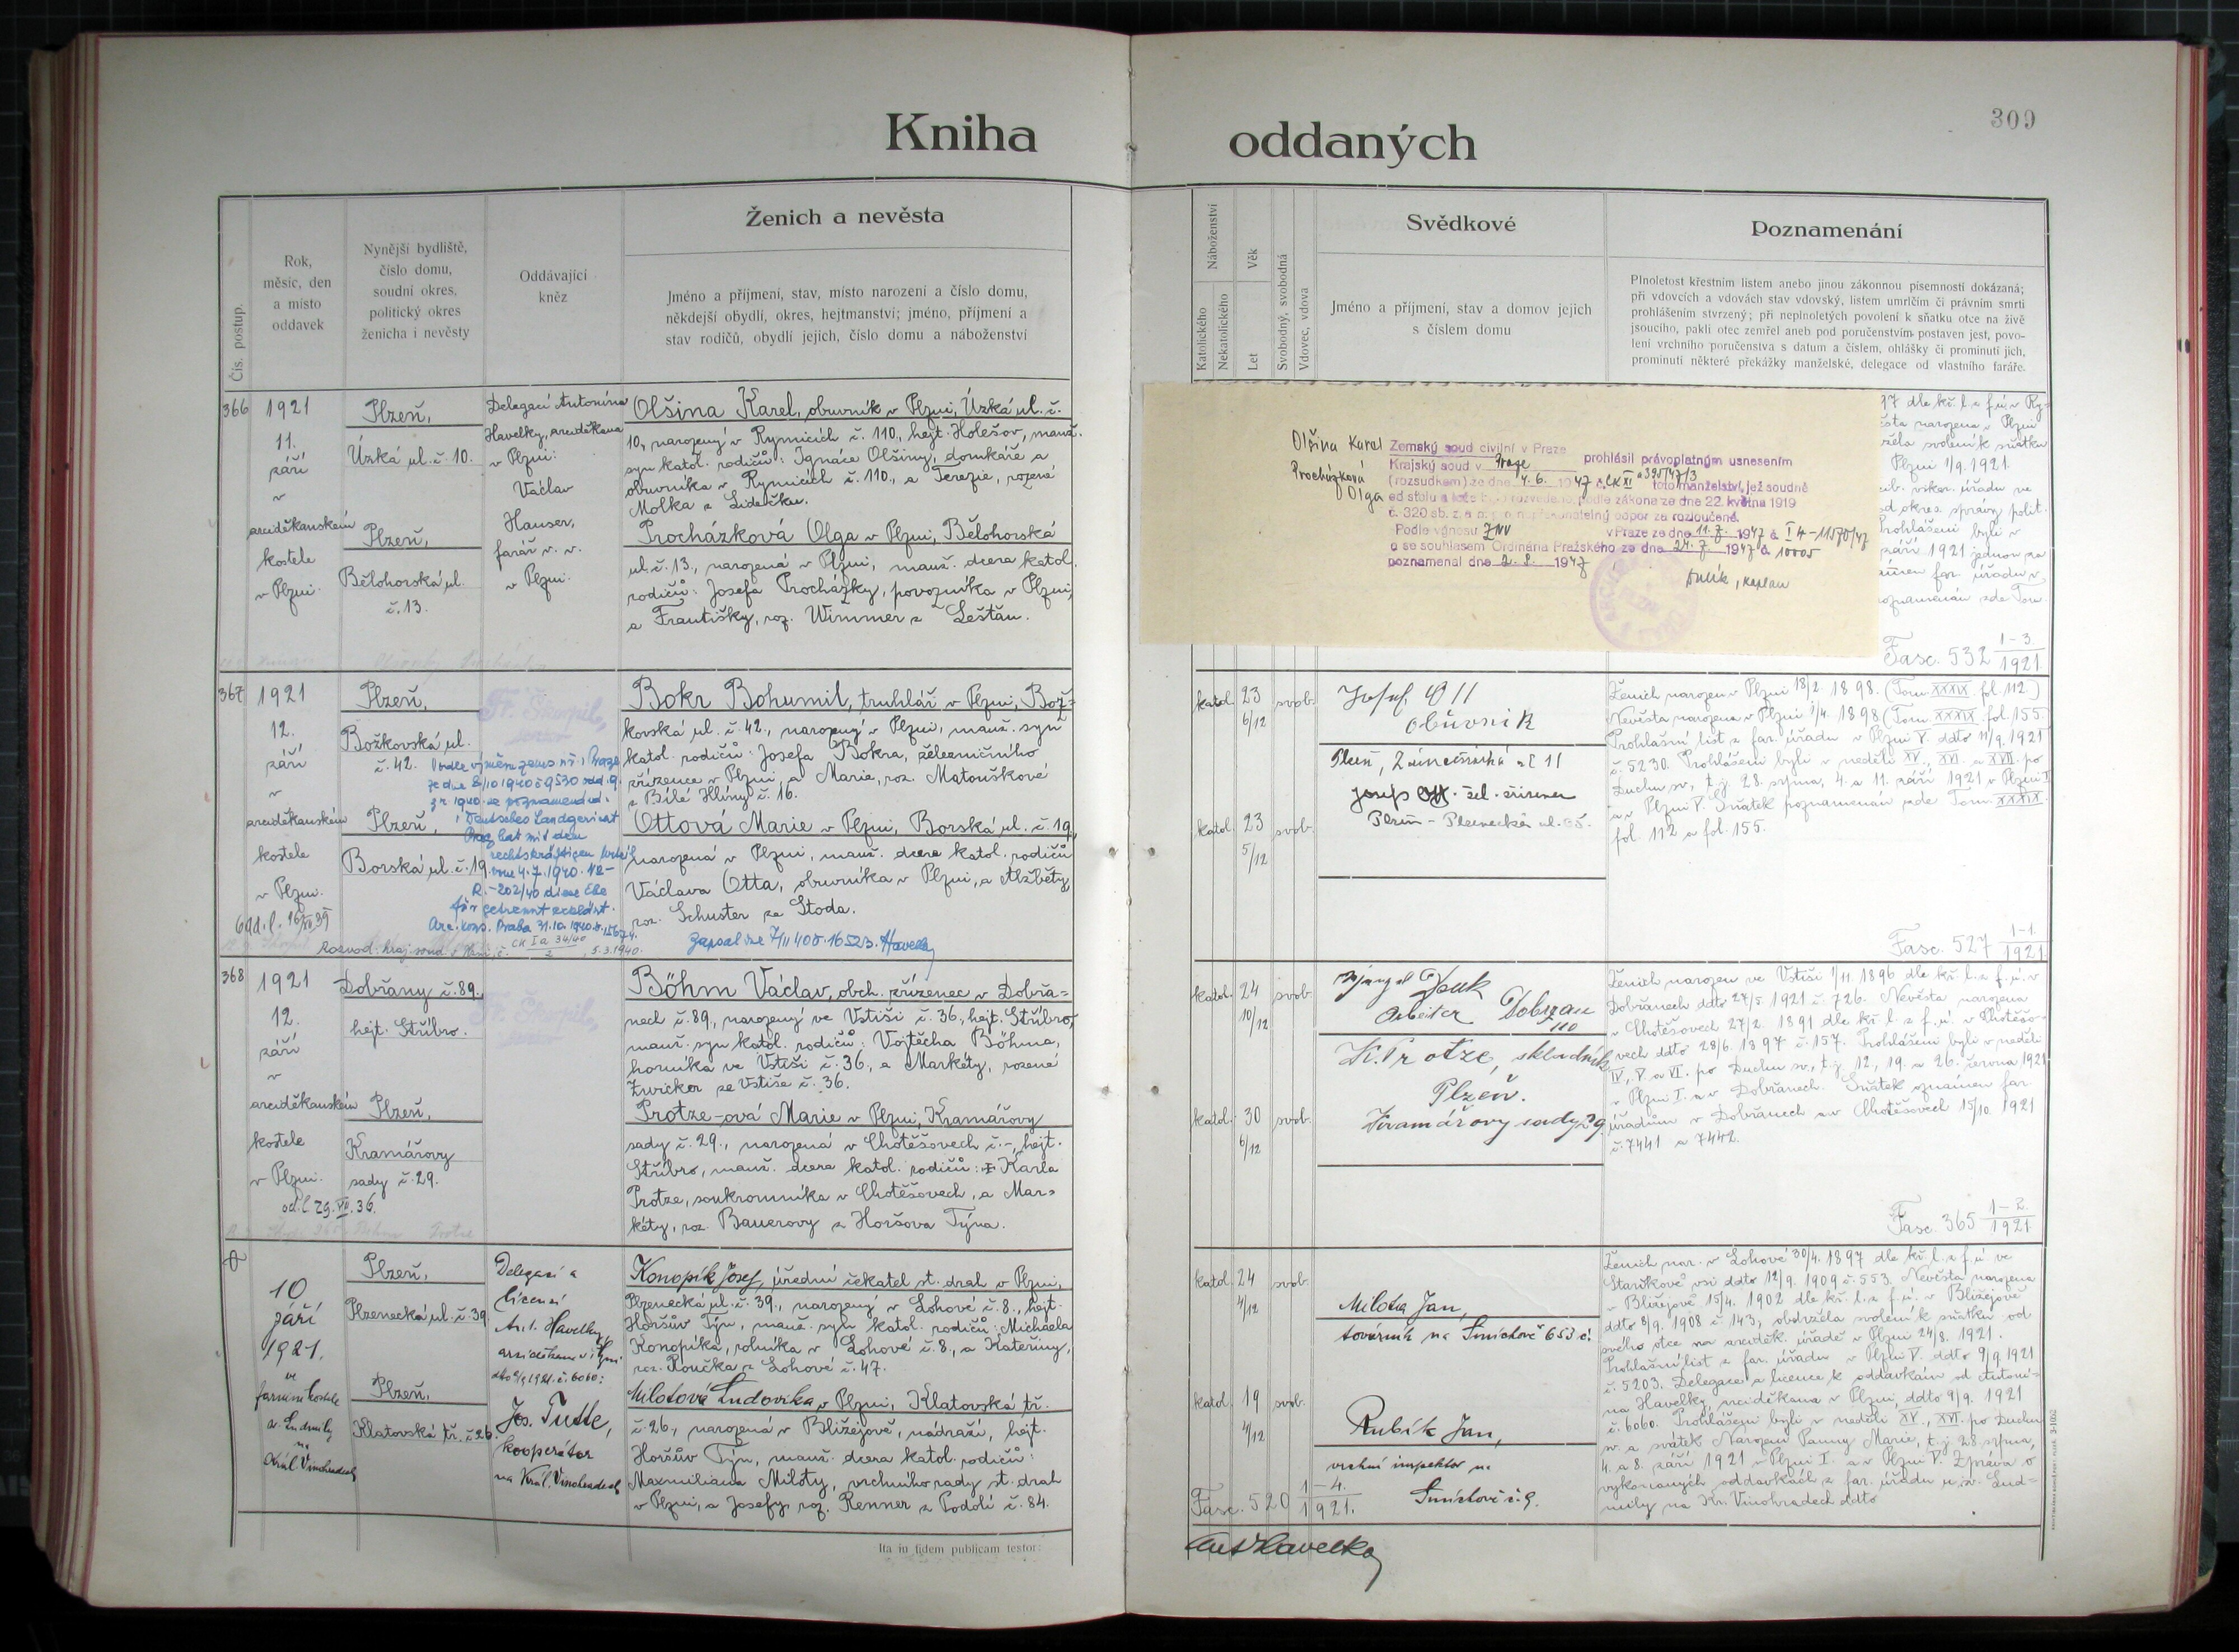 Kniha oddaných
309
Čís. postup.
Rok,
měsíc, den
a místo
oddavek
Nynější bydliště,
číslo domu,
soudní okres,
politický okres
ženicha i nevěsty
Oddávající
kněz
Ženich a nevěsta
Jméno a příjmení, stav, místo narození a číslo domu,
někdejší obydlí, okres, hejtmanství; jméno, příjmení a
stav rodičů, obydlí jejich, číslo domu a náboženství
Náboženství
Katolického
Nekatolického
Věk
Let
Svobodný, svobodná
Vdovec, vdova
Svědkové
Jméno a příjmení, stav a domov jejich
s číslem domu
Poznamenání
Plnoletost křestním listem anebo jinou zákonnou písemností dokázaná;
při vdovcích a vdovách stav vdovský, listem umrlčím či právním smrti
prohlášením stvrzený; při neplnoletých povolení k sňatku otce na živě
jsoucího, pakli otec zemřel aneb pod poručenstvím postaven jest, povo-
lení vrchního poručenstva s datum a číslem, ohlášky či prominutí jich,
prominutí některé překážky manželské, delegace od vlastního faráře.
366
1921
11.
září
v
arciděkanském
kostele
v Plzni.
Plzeň,
Úzká ul. č. 10.
Plzeň,
Bělohorská ul.
č. 13.
Delegací Antonína
Havelky, arciděkana
v Plzni:
Václav
Hauser,
farář v. v.
v Plzni.
Olšina Karel, obuvník v Plzni, Úzká ul. č.
10, narozený v Rymicích č. 110., hejt. Holešov, manž.
syn katol. rodičů: Ignáce Olšiny, domkáře a
obuvníka v Rymicích č. 110., a Terezie, rozené
Molka z Lidečka.
Procházková Olga v Plzni, Bělohorská
ul. č. 13., narozená v Plzni, manž. dcera katol.
rodičů: Josefa Procházky, povozníka v Plzni,
a Františky, roz. Wimmer z Leštan.
Olšina Karel
Procházková
Olga
Zemský soud civilní v Praze
Krajský soud v Praze prohlásil právoplatným usnesením
(rozsudkem) ze dne 4. 6. 1947 č. CK XI a 395/47/3 toto manželství, jež soudně
od stolu a lože bylo rozvedeno, podle zákona ze dne 22. května 1919
č. 320 sb. z. a n. pro nepřekonatelný odpor za rozloučené.
Podle výnosu ZNV v Praze ze dne 11. 7. 1947 č. I 4-11570/47
a se souhlasem Ordinária Pražského ze dne 24. 7. 1947 č. 10005
poznamenal dne 2. 8. 1947
kaplan
97 dle kř. l. z f. ú. v Ry-
narozena v Plzni
svolení k sňatku
Plzni 1/9. 1921.
úřadu ve
od okres. správy polit.
Prohlášeni byli v
září 1921 jednou za
far. úřadu v
zde Tom.
Fasc. 532 1-3/1921
367
1921
12.
září
v
arciděkanském
kostele
v Plzni.
Plzeň,
Božkovská ul.
č. 42.
Plzeň,
Borská ul. č. 19.
Fr. Škorpil,
Deutsches Landgericht
Prag hat mit dem
rechtskräftigen Urteil
vom 4. 7. 1940
R.-202/40 diese Ehe
für getrennt erklärt.
Bokr Bohumil, truhlář v Plzni, Bož-
kovská ul. č. 42., narozený v Plzni, manž. syn
katol. rodičů: Josefa Bokra, železničního
zřízence v Plzni, a Marie, roz. Matouškové
z Bílé Hlíny č. 16.
Ottová Marie v Plzni, Borská ul. č. 19.,
narozená v Plzni, manž. dcera katol. rodičů
Václava Otta, obuvníka v Plzni, a Alžběty,
roz. Schuster ze Stoda.
Rozvod. kraj. soud v Plzni, č. CK Ia 34/40/2, 5.3.1940.
Havelka
katol. 23 6/12 svob.
katol. 23 5/12 svob.
Josef Ott
obuvník
Josef Ott
Ženich narozen v Plzni 18/2. 1898. (Tom. XXXIX. fol. 112.)
Nevěsta narozena v Plzni 1/4. 1898 (Tom. XXXIX. fol. 155.
Prohlášní list z far. úřadu v Plzni V. ddto 11/9. 1921
č. 5230. Prohlášeni byli v neděli XV., XVI. a XVII. po
Duchu sv., t. j. 28. srpna, 4. a 11. září 1921 v Plzni I.
a v Plzni V. Sňatek poznamenán zde Tom. XXXIX.
fol. 112 a fol. 155.
Fasc. 527 1-1/1921
368
1921
12.
září
v
arciděkanském
kostele
v Plzni.
od. l. 29. VII. 36.
Dobřany č. 89.,
hejt. Stříbro.
Plzeň,
Kramářovy
sady č. 29.
Fr. Škorpil,
Böhm Václav, obch. zřízenec v Dobřa-
nech č. 89., narozený ve Vstiši č. 36., hejt. Stříbro,
manž. syn katol. rodičů: Vojtěcha Böhma,
horníka ve Vstiši č. 36., a Markéty, rozené
Zwicker ze Vstiše č. 36.
Protze-ová Marie v Plzni, Kramářovy
sady č. 29., narozená v Chotěšovech č. -, hejt.
Stříbro, manž. dcera katol. rodičů: Karla
Protze, soukromníka v Chotěšovech, a Mar-
kéty, roz. Bauerovy z Horšova Týna.
katol. 24 10/12 svob.
katol. 30 6/12 svob.
Arbeiter Dobrzan
110
K. Protze, skladník
Plzeň.
Kramářovy sady 29
Ženich narozen ve Vstiši 1/11. 1896 dle kř. l. z f. ú. v
Dobřanech ddto 27/5. 1921 č. 726. Nevěsta narozena
v Chotěšovech 27/2. 1891 dle kř. l. z f. ú. v Chotěšo-
vech ddto 28/6. 1897 č. 157. Prohlášeni byli v neděli
IV., V. a VI. po Duchu sv., t. j. 12., 19. a 26. června 1921
v Plzni I. a v Dobřanech. Sňatek oznámen far.
úřadům v Dobřanech a v Chotěšovech 15/10. 1921
č. 7441 a 7442.
Fasc. 365 1-2/1921
10
září
1921.
ve
farním kostele
sv. Ludmily
na
Král. Vinohradech
Plzeň,
Plzenecká ul. č. 39.
Plzeň,
Klatovská tř. č. 26.
Delegací a
licencí
Ant. Havelky,
arciděkana v Plzni
ddto 9/9 1921. č. 6060:
Jos. Tutte,
kooperátor
na Král. Vinohradech
Konopík Josef, úřední čekatel st. drah v Plzni,
Plzenecká ul. č. 39., narozený v Lohové č. 8., hejt.
Horšův Týn, manž. syn katol. rodičů: Michaela
Konopíka, rolníka v Lohové č. 8., a Kateřiny,
roz. Roučka z Lohové č. 47.
Milotová Ludovika v Plzni, Klatovská tř.
č. 26., narozená v Blížejově, nádraží, hejt.
Horšův Týn, manž. dcera katol. rodičů:
Maxmiliana Miloty, vrchního rady st. drah
v Plzni, a Josefy, roz. Renner z Podolí č. 84.
katol. 24 4/12 svob.
katol. 19 4/12 svob.
Milota Jan,
továrník na Smíchově 653 č.
Rubík Jan,
vrchní inspektor na
Smíchově č. 9.
Fasc. 520 1-4./1921.
Ženich nar. v Lohové 30/4. 1897 dle kř. l. z f. ú. ve
Staňkově vsi ddto 12/9. 1909 č. 553. Nevěsta narozena
v Blížejově 15/4. 1902 dle kř. l. z f. ú. v Blížejově
ddto 8/9. 1908 č. 143, obdržela svolení k sňatku od
svého otce na arciděk. úřadě v Plzni 24/8. 1921.
Prohlášní list z far. úřadu v Plzni V. ddto 9/9. 1921
č. 5203. Delegace a licence k oddavkám od Antoní-
na Havelky, arciděkana v Plzni, ddto 9/9. 1921
č. 6060. Prohlášeni byli v neděli XV., XVI. po Duchu
sv. a svátek Narození Panny Marie, t. j. 28. srpna,
4. a 8. září 1921 v Plzni I. a v Plzni V. Zpráva o
vykonaných oddavkách z far. úřadu u sv. Lud-
mily na Kr. Vinohradech ddto
Ita in fidem publicam testor:
Ant Havelka